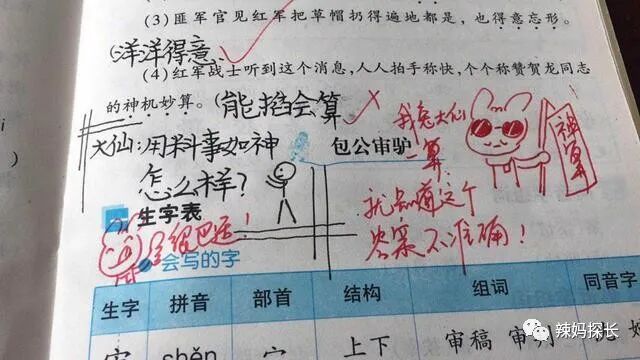 (3) 匪军官见红军把草帽扔得遍地都是,也得意忘形。
(洋洋得意)
(4) 红军战士听到这个消息,人人拍手称快,个个称赞贺龙同志
的神机妙算。(能掐会算)
大仙:用料事如神
怎么样?
我兔大仙
一算,
就知道这个
答案不准确!
神算
包公审驴
生字表
会写的字
生字 拼音 部首 结构 组词 同音字
shěn 宀 上下 审稿 审判
辣妈探长